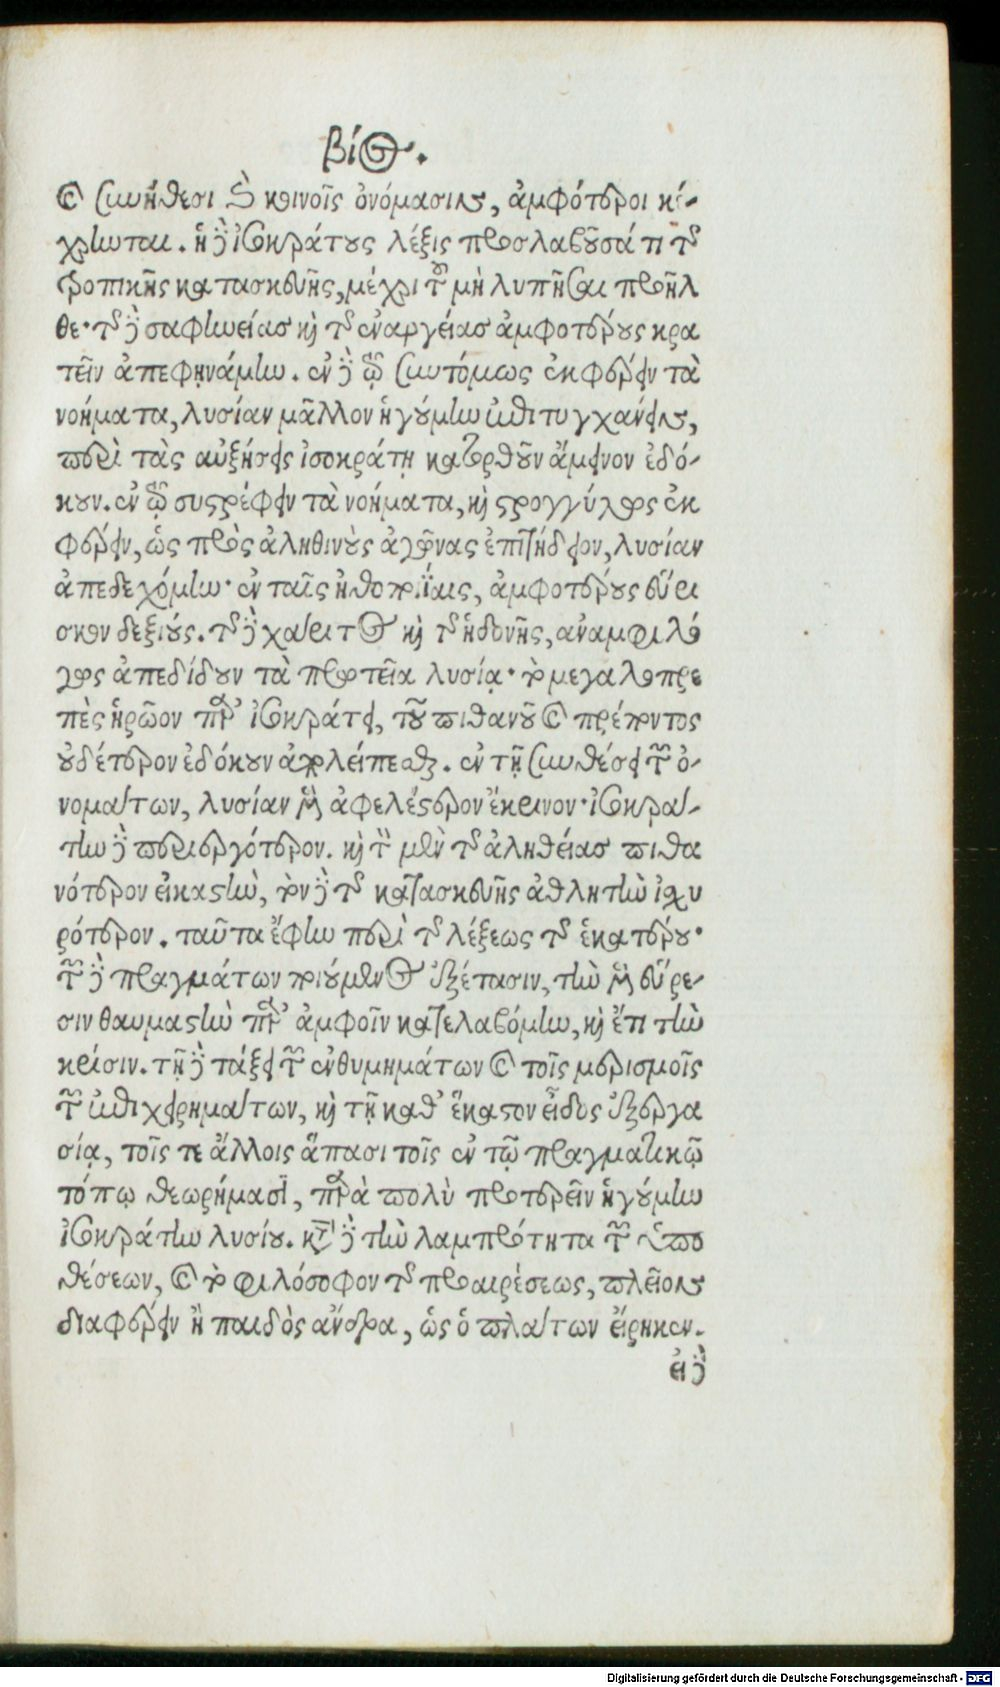 βίος.
καὶ συνήθεσι καὶ κοινοῖς ὀνόμασιν, ἀμφότεροι κέ-
χρηνται. ἡ δὲ ἰσοκράτους λέξις προσλαβοῦσά τι τῆς
τροπικῆς κατασκευῆς, μέχρι τοῦ μὴ λυπῆσαι προῆλ
θε· τῆς δὲ σαφηνείας καὶ τῆς ἐναργείας ἀμφοτέρους κρα
τεῖν ἀπεφηνάμην. ἐν δὲ τῷ συντόμως ἐκφέρειν τὰ
νοήματα, λυσίαν μᾶλλον ἡγούμην ἐπιτυγχάνειν,
περὶ τὰς αὐξήσεις ἰσοκράτη κατορθοῦν ἄμεινον ἐδό-
κουν. ἐν τῷ συστρέφειν τὰ νοήματα, καὶ στρογγύλως ἐκ
φέρειν, ὡς πρὸς ἀληθινοὺς ἀγῶνας ἐπιτήδειον, λυσίαν
ἀπεδεχόμην· ἐν ταῖς ἠθοποιΐαις, ἀμφοτέρους εὕρι
σκον δεξιούς. τῆς δὲ χάριτος καὶ τῆς ἡδονῆς, ἀναμφιλό
γως ἀπεδίδουν τὰ πρωτεῖα λυσίᾳ· τὸ μεγαλοπρε
πὲς ἡρῶον παρ' ἰσοκράτει, τοῦ πιθανοῦ καὶ πρέποντος
οὐδέτερον ἐδόκουν ἀπολείπεσθαι. ἐν τῇ συνθέσει τῶν ὀ-
νομάτων, λυσίαν μὲν ἀφελέστερον ἔκρινον· ἰσοκρά-
την δὲ περιεργότερον. καὶ τὸν μὲν τῆς ἀληθείας πιθα
νώτερον εἰκαστὴν, τὸν δὲ τῆς κατασκευῆς ἀθλητὴν ἰσχυ
ρότερον. ταῦτα ἔφην περὶ τῆς λέξεως τῆς ἑκατέρου·
τῶν δὲ πραγμάτων ποιούμενος ἐξέτασιν, τὴν μὲν εὕρε-
σιν θαυμαστὴν παρ' ἀμφοῖν κατελαβόμην, καὶ ἔτι τὴν
κρίσιν. τῇ δὲ τάξει τῶν ἐνθυμημάτων καὶ τοῖς μερισμοῖς
τῶν ἐπιχειρημάτων, καὶ τῇ καθ' ἕκαστον εἶδος ἐξεργα
σίᾳ, τοῖς τε ἄλλοις ἅπασι τοῖς ἐν τῷ πραγματικῷ
τόπῳ θεωρήμασι, παρὰ πολὺ προτερεῖν ἡγούμην
ἰσοκράτην λυσίου. κατὰ δὲ τὴν λαμπρότητα τῶν ὑπο
θέσεων, καὶ τὸ φιλόσοφον τῆς προαιρέσεως, πλεῖον
διαφέρειν ἢ παιδὸς ἄνδρα, ὡς ὁ πλάτων εἴρηκεν.
εἰ δὲ
Digitalisierung gefördert durch die Deutsche Forschungsgemeinschaft - DFG